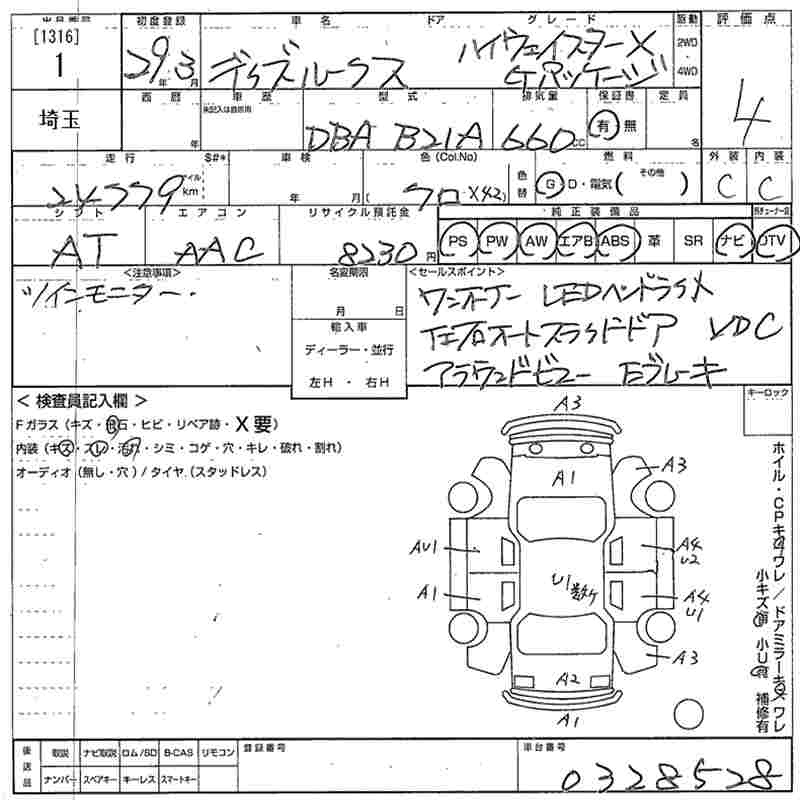 [1316]
1
埼玉
初度登録
29年 3月
車名 ドア グレード
デイズルークス
ハイウェイスターX
Gパッケージ
駆動
2WD
4WD
評価点
4
西暦
年
車歴
未記入は自家用
型式
DBA B21A
排気量
660cc
保証書
有・無
定員
名
走行
24779
マイル
km
S#*
車検
年 月
色 (Col.No)
クロ (X42)
色替
燃料
G・D・電気( その他 )
外装
C
内装
C
シフト
AT
エアコン
AAC
リサイクル預託金
8230円
純正装備品
PS PW AW エアB ABS 革 SR ナビ DTV
<注意事項>
ツインモニター.
名変期限
月 日
輸入車
ディーラー・並行
左H・右H
<セールスポイント>
ワンオーナー LEDヘッドライト
両オートスライドドア VDC
アラウンドビュー Eブレーキ
キーロック
< 検査員記入欄 >
Fガラス(キズ・飛石・ヒビ・リペア跡・X要)
内装(キズ・スレ・汚れ・シミ・コゲ・穴・キレ・破れ・割れ)
オーディオ(無し・穴)/タイヤ.(スタッドレス)
A3
A1
A3
AU1
A4
U2
U1
A1
A4
U1
A3
A2
A1
ホイル・CPキズワレ/ドアミラーキズワレ
小キズ有 小U有 補修有
後送品
取説 ナビ取説 ロム/SD B-CAS リモコン
ナンバー スペアキー キーレス スマートキー
登録番号
車台番号
0328528